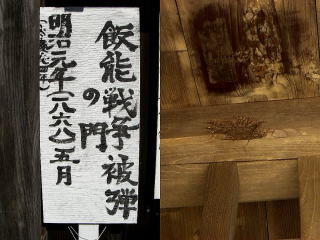 飯能戦争被弾
の門
明治元年(一八六八)五月